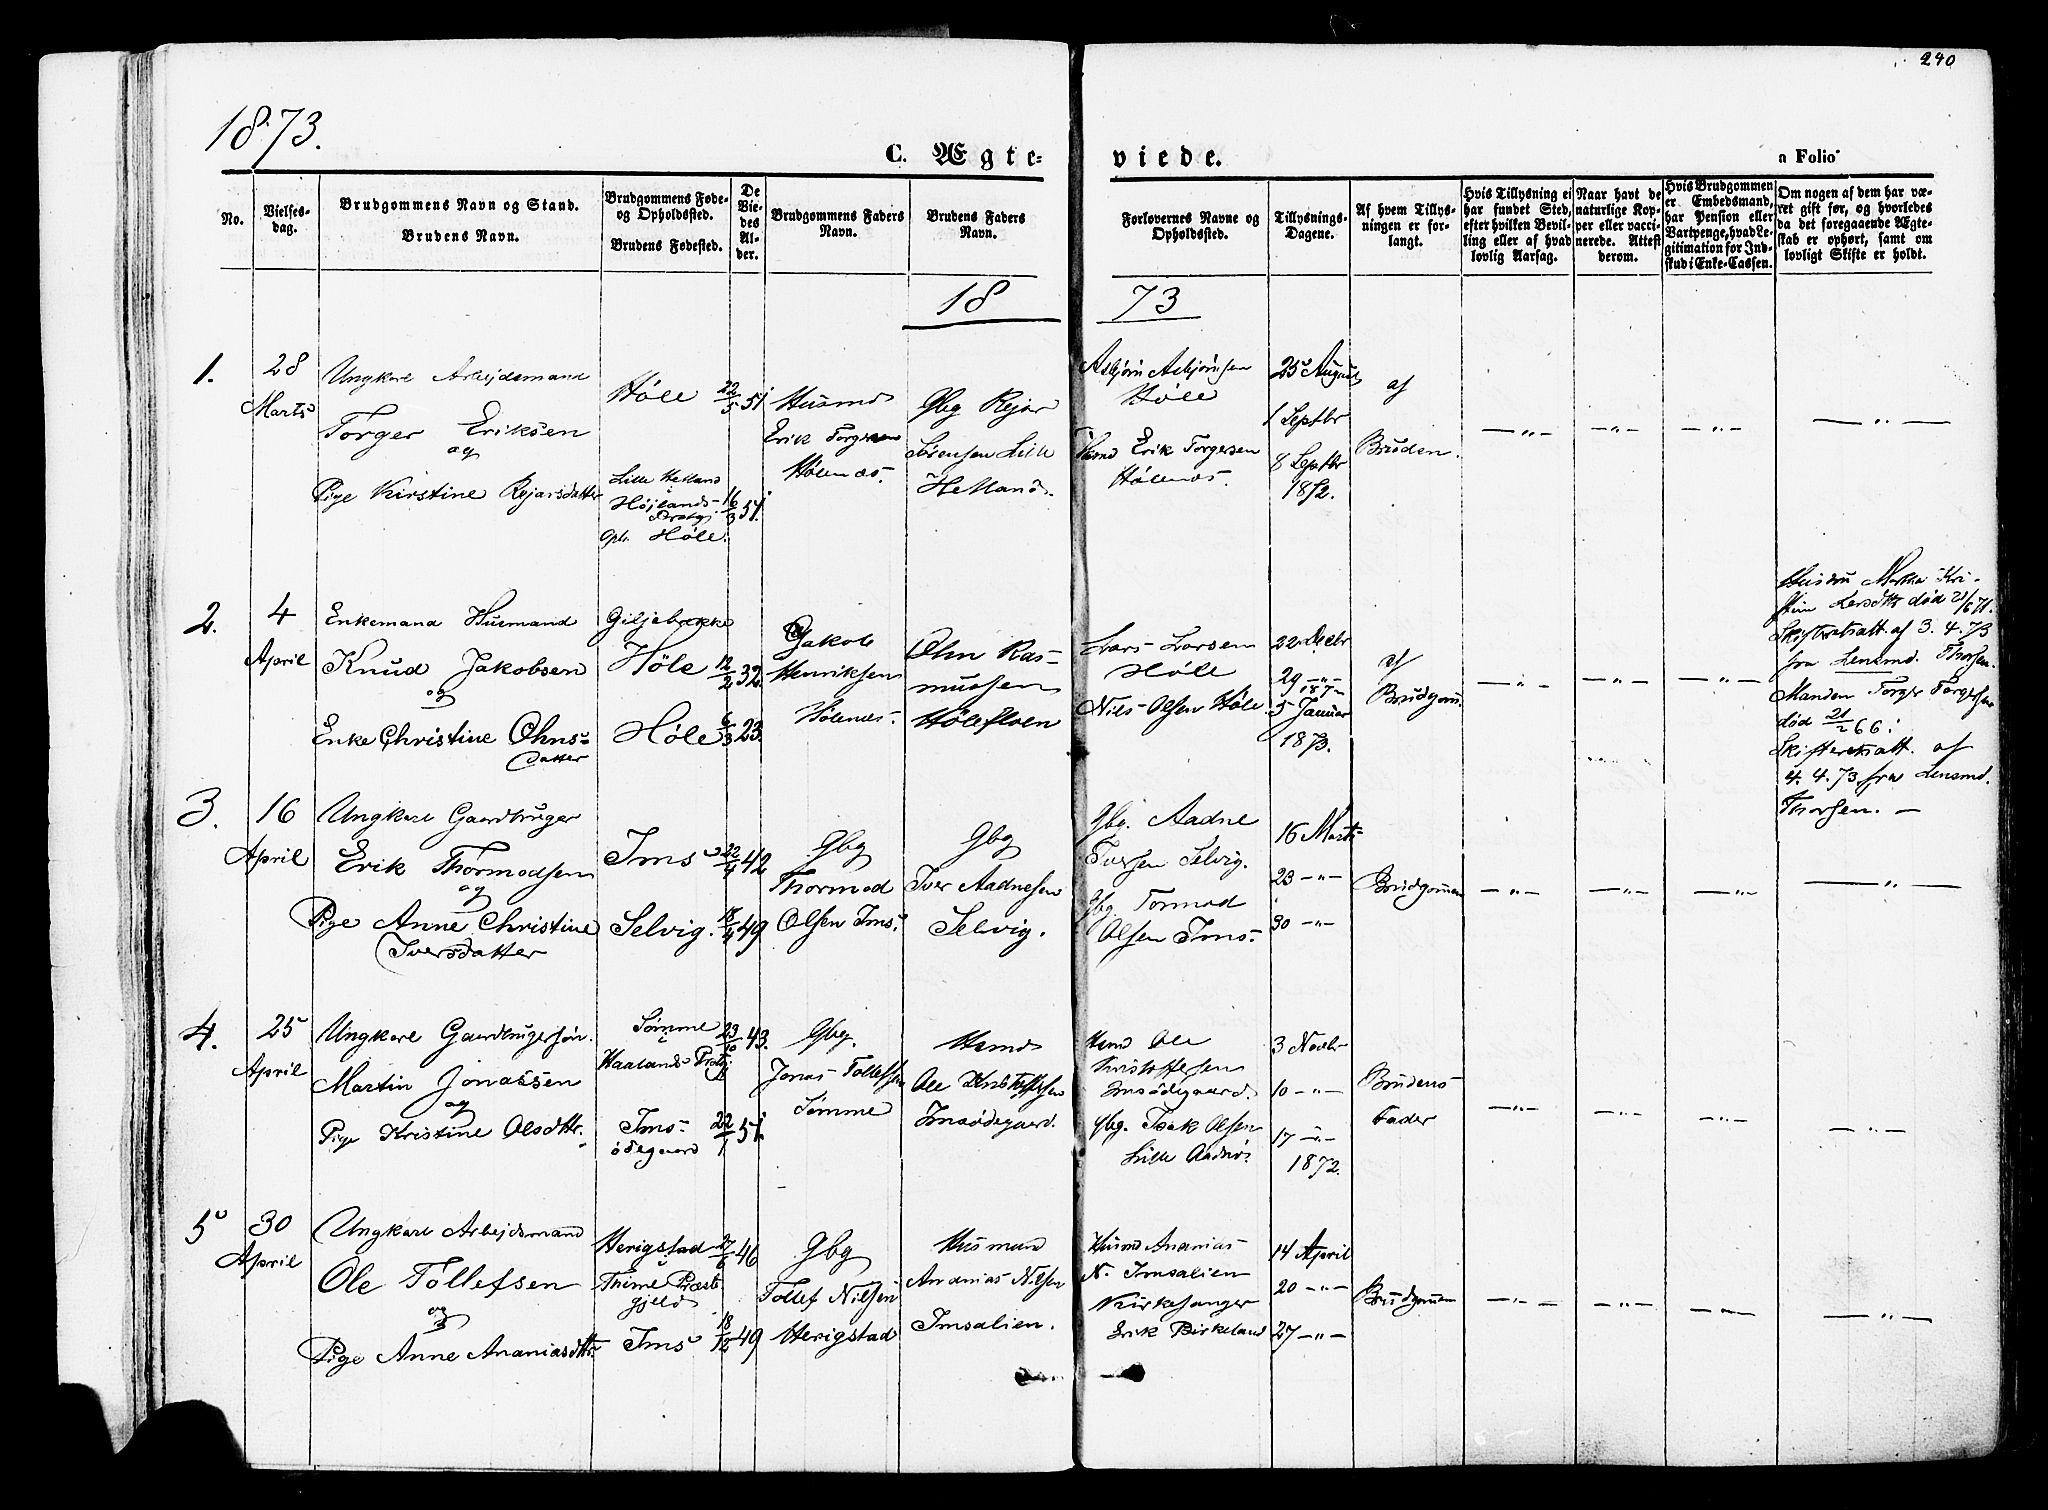 240
1873.
C. Ægte-
viede.
n Folio
No.
Vielses-
dag.
Brudgommens Navn og Stand.
Brudens Navn.
Brudgommens Føde-
og Opholdssted.
Brudens Fødested.
De
Vie-
des
Al-
der.
Brudgommens Faders
Navn.
Brudens Faders
Navn.
Forlovernes Navne og
Opholdssted.
Tillysnings-
Dagene.
Af hvem Tillys-
ningen er for-
langt.
Hvis Tillysning ei
har fundet Sted,
efter hvilken Bevil-
ling eller af hvad
lovlig Aarsag.
Naar havt de
naturlige Kop-
per eller vacci-
nerede. Attest
derom.
Hvis Brudgommen
er Embedsmand,
har Pension eller
Vartpenge, hvad Le-
gitimation for Ind-
skud i Enke-Cassen.
Om nogen af dem har væ-
ret gift før, og hvorledes
da det foregaaende Ægte-
skab er ophørt, samt om
lovligt Skifte er holdt.
18
73
1.
28
Marts
Ungkarl Arbejdsmand
Torger Eriksen
og
Pige Kirstine Rejarsdatter
Høle
Lille Helland
Højlands
Prstgj.
Høle.
22/5 51
16/3 51.
Husmd
Erik Torgersen
Hølenæs.
Gbg Rejar
Sørensen Lille
Helland.
Asbjørn Asbjørnsen
Høle
Husmd Erik Torgersen
Hølenæs.
25 August
1 Septbr
8 Septbr
1872.
af
Bruden.
— „ —
— „ —
— „ —
— „ —
2.
4
April
Enkemand Husmand
Knud Jakobsen
og
Enke Christine Ohns-
datter
Giljebrekke
Høle
Høle
12/2 32.
6/3 23.
Jakob
Henriksen
Hølenæs.
Ohn Ras-
mussen
Hølefloen
Lars Larsen
Høle
Niels Olsen Høle.
22 Decbr
29 — „ —
1872
5 Januar
1873.
af
Brudgom.
— „ —
— „ —
— „ —
Husdru Martha Kri-
stine Larsdtr død 21/6 71.
Skifteratt. af 3. 4. 73
fra Lensmd. Thorsen.
Manden Torger Torgersen
død 21/2 66;
Skifteratt. af
4. 4. 73 fra Lensmd.
Thorsen. —
3.
16
April
Ungkarl Gaardbruger
Erik Thormodsen
og
Pige Anne Christine
Iversdatter
Ims
Selvig.
22/4 42
18/4 49
Gbg
Thormod
Olsen Ims
Gbg
Iver Aadnesen
Selvig.
Gbg. Aadne
Iversen Selvig.
Gbg. Tormod
Olsen Ims.
16 Marts
23 — „ —
30 — „ —
Brudgommen
— „ —
— „ —
— „ —
— „ —
4.
25
April
Ungkarl Gaardbrugersøn.
Martin Jonassen
og
Pige Kristine Olsdtr.
Sømme
Haalands Prstgj
Ims-
ødegaard
23/10 43.
22/1 51.
Gbg.
Jonas Tollefsen
Sømme
Husmd
Ole Kristoffersen
Imsødegaard.
Husmd Ole
Kristoffersen
Imsødegaard.
Gbg. Isak Olsen
Lille Aadnø.
3 Novbr
10 — „ —
17 — „ —
1872.
Brudens
Fader
— „ —
— „ —
— „ —
— „ —
5
30
April
Ungkarl Arbejdsmand
Ole Tollefsen
og
Pige Anne Ananiasdtr.
Herigstad
Thime Præste
gjeld
Ims
27/6 46
18/12 49
Gbg
Tollef Nilsen
Herigstad
Husmand
Ananias Nilsen
Imsalien.
Husmd Ananias
N. Imsalien
Kirkesanger
Erik Birkeland
14 April
20 — „ —
27 — „ —
Brudgommen
— „ —
— „ —
— „ —
— „ —